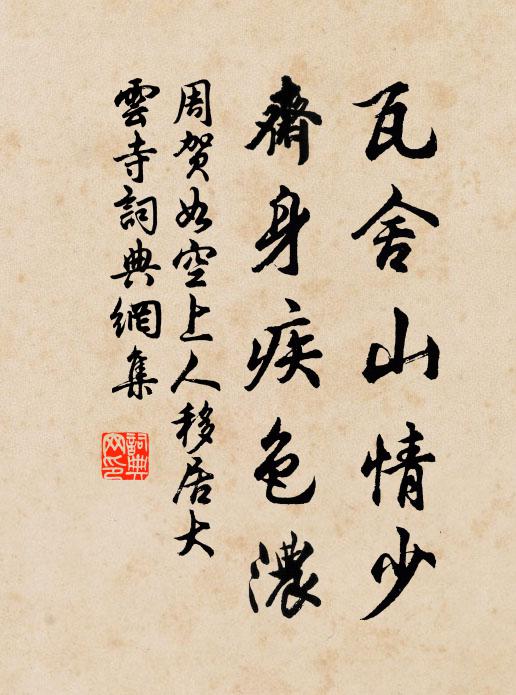 瓦舍山情少
齋身疾色濃
周贺如空上人移居大
雲寺詞典網集
詞典
网印